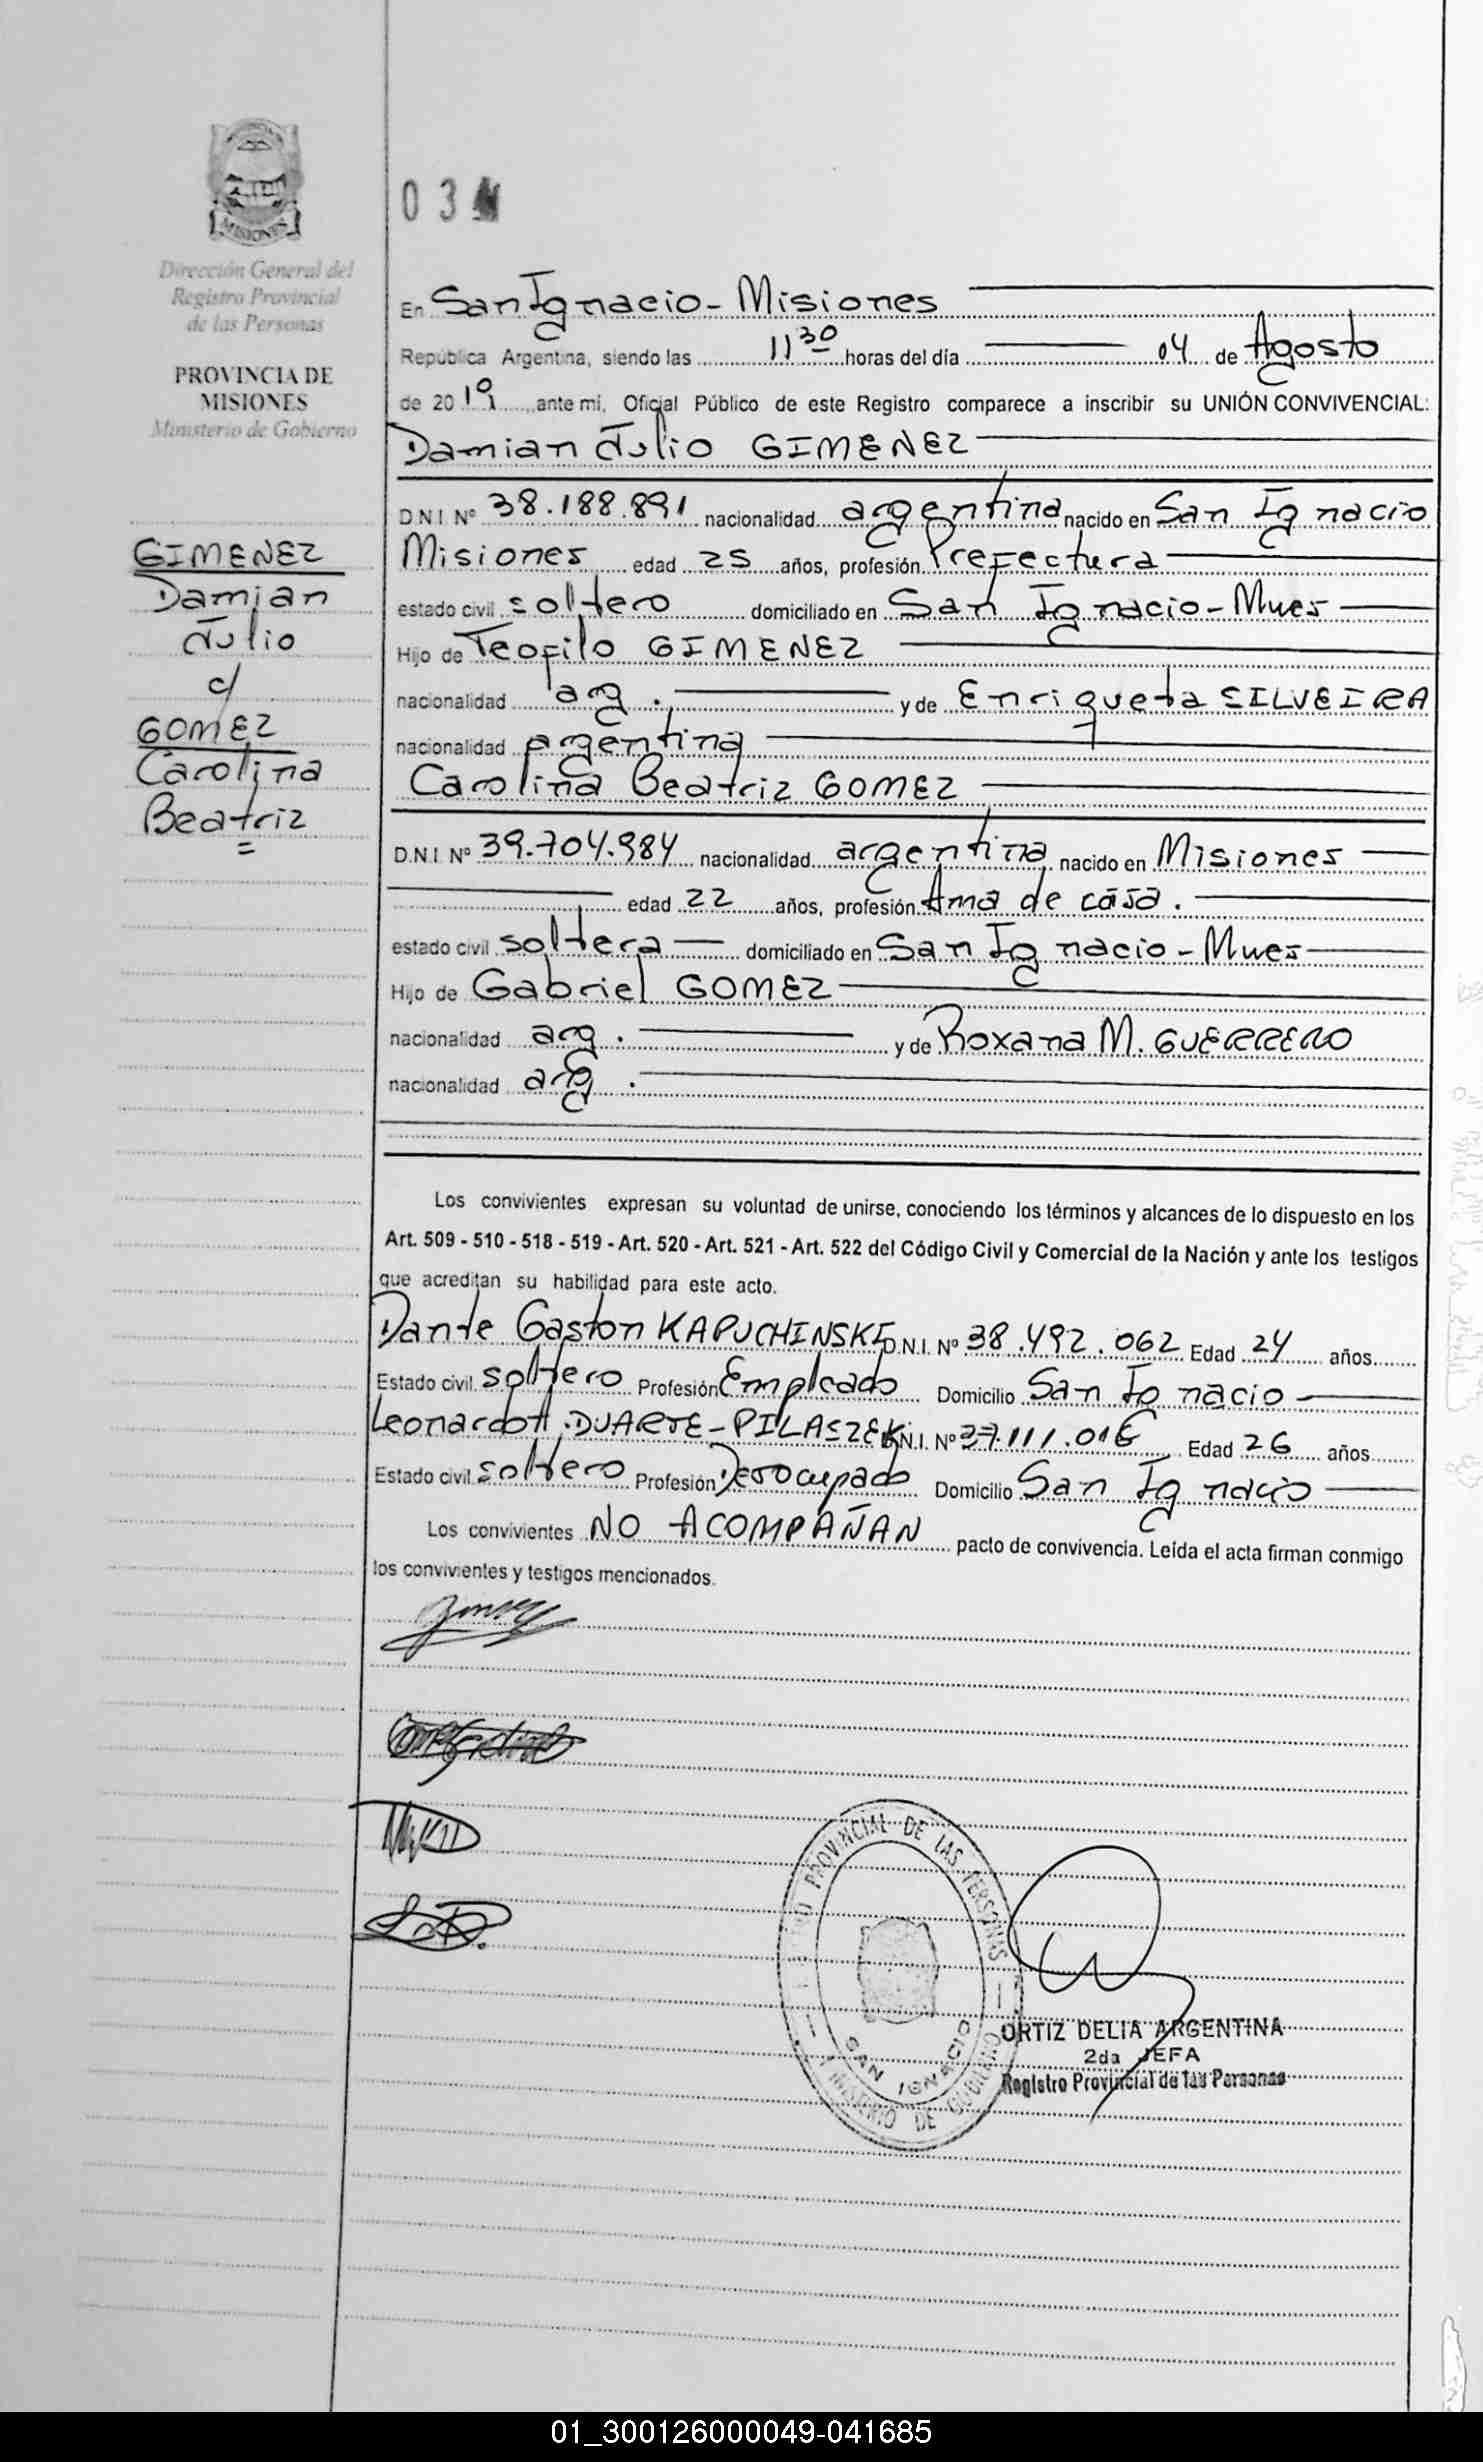 MISIONES
Dirección General del
Registro Provincial
de las Personas
PROVINCIA DE
MISIONES
Ministerio de Gobierno
GIMENEZ
Damian
Julio
c/
GOMEZ
Carolina
Beatriz
03
En San Ignacio - Misiones
República Argentina, siendo las 11 30 horas del día 04 de Agosto
de 2019, ante mi, Oficial Público de este Registro comparece a inscribir su UNIÓN CONVIVENCIAL:
Damian Julio GIMENEZ
D.N.I. Nº 38.188.891 nacionalidad argentina nacido en San Ignacio
Misiones edad 25 años, profesión Prefectura
estado civil soltero domiciliado en San Ignacio - Mnes
Hijo de Teofilo GIMENEZ
nacionalidad arg. y de Enriqueta SILVEIRA
nacionalidad argentina
Carolina Beatriz GOMEZ
D.N.I. Nº 39.704.984 nacionalidad argentina nacido en Misiones
edad 22 años, profesión Ama de casa.
estado civil soltera domiciliado en San Ignacio - Mnes
Hijo de Gabriel GOMEZ
nacionalidad arg. y de Roxana M. GUERRERO
nacionalidad arg.
Los convivientes expresan su voluntad de unirse, conociendo los términos y alcances de lo dispuesto en los
Art. 509 - 510 - 518 - 519 - Art. 520 - Art. 521 - Art. 522 del Código Civil y Comercial de la Nación y ante los testigos
que acreditan su habilidad para este acto.
Dante Gaston KAPUCHINSKI D.N.I. Nº 38.492.062 Edad 24 años
Estado civil soltero Profesión Empleado Domicilio San Ignacio
Leonardo A. DUARTE - PILASZEK D.N.I. Nº 37.111.016 Edad 26 años
Estado civil soltero Profesión Desocupado Domicilio San Ignacio
Los convivientes NO ACOMPAÑAN pacto de convivencia. Leída el acta firman conmigo
los convivientes y testigos mencionados.
REGISTRO PROVINCIAL DE LAS PERSONAS
SAN IGNACIO
MINISTERIO DE GOBIERNO
ORTIZ DELIA ARGENTINA
2da JEFA
Registro Provincial de las Personas
01_300126000049-041685